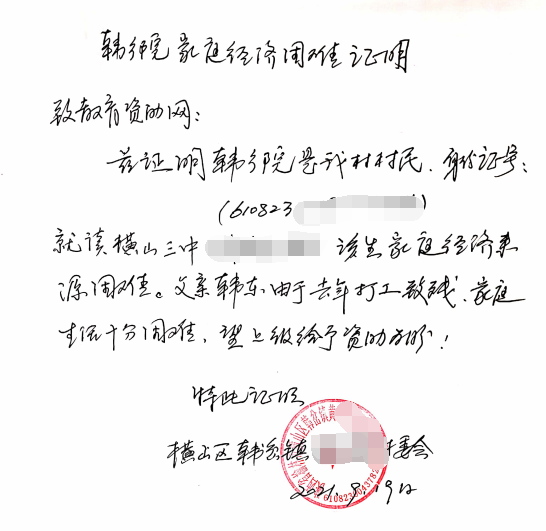 韩彻院家庭经济困难证明
致教育资助网：
兹证明韩彻院是我村村民、身份证号：
(610823        )
就读横山三中        该生家庭经济来
源困难。父亲韩东由于去年打工致残、家庭
生活十分困难，望上级给予资助为盼！
特此证明
横山区韩岔镇      村委会
2021.9.19日